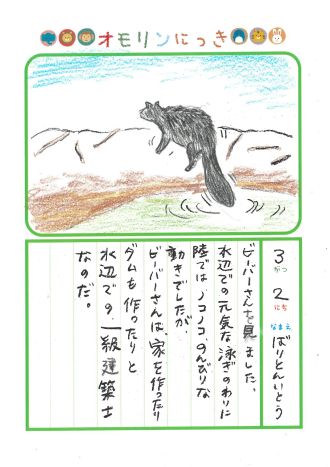 オモリンにっき
3がつ
2にち
なまえ ばりとんいとう
ビーバーさんを見ました。
水辺での元気な泳ぎのわりに
陸ではノコノコ、のんびりな
動きでしたが、
ビーバーさんは、家を作ったり
ダムを作ったりと
水辺での一級建築士
なのだ。